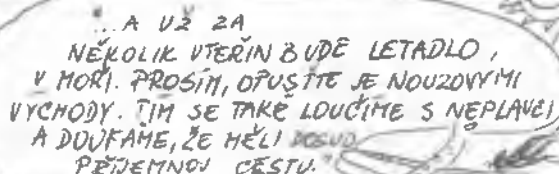 ...A UŽ ZA
NĚKOLIK VTEŘIN BUDE LETADLO,
V MOŘI. PROSÍM, OPUSŤTE JE NOUZOVÝMI
VÝCHODY. TÍM SE TAKÉ LOUČÍME S NEPLAVCI,
A DOUFÁME, ŽE MĚLI DOSUD
PŘÍJEMNOU CESTU.